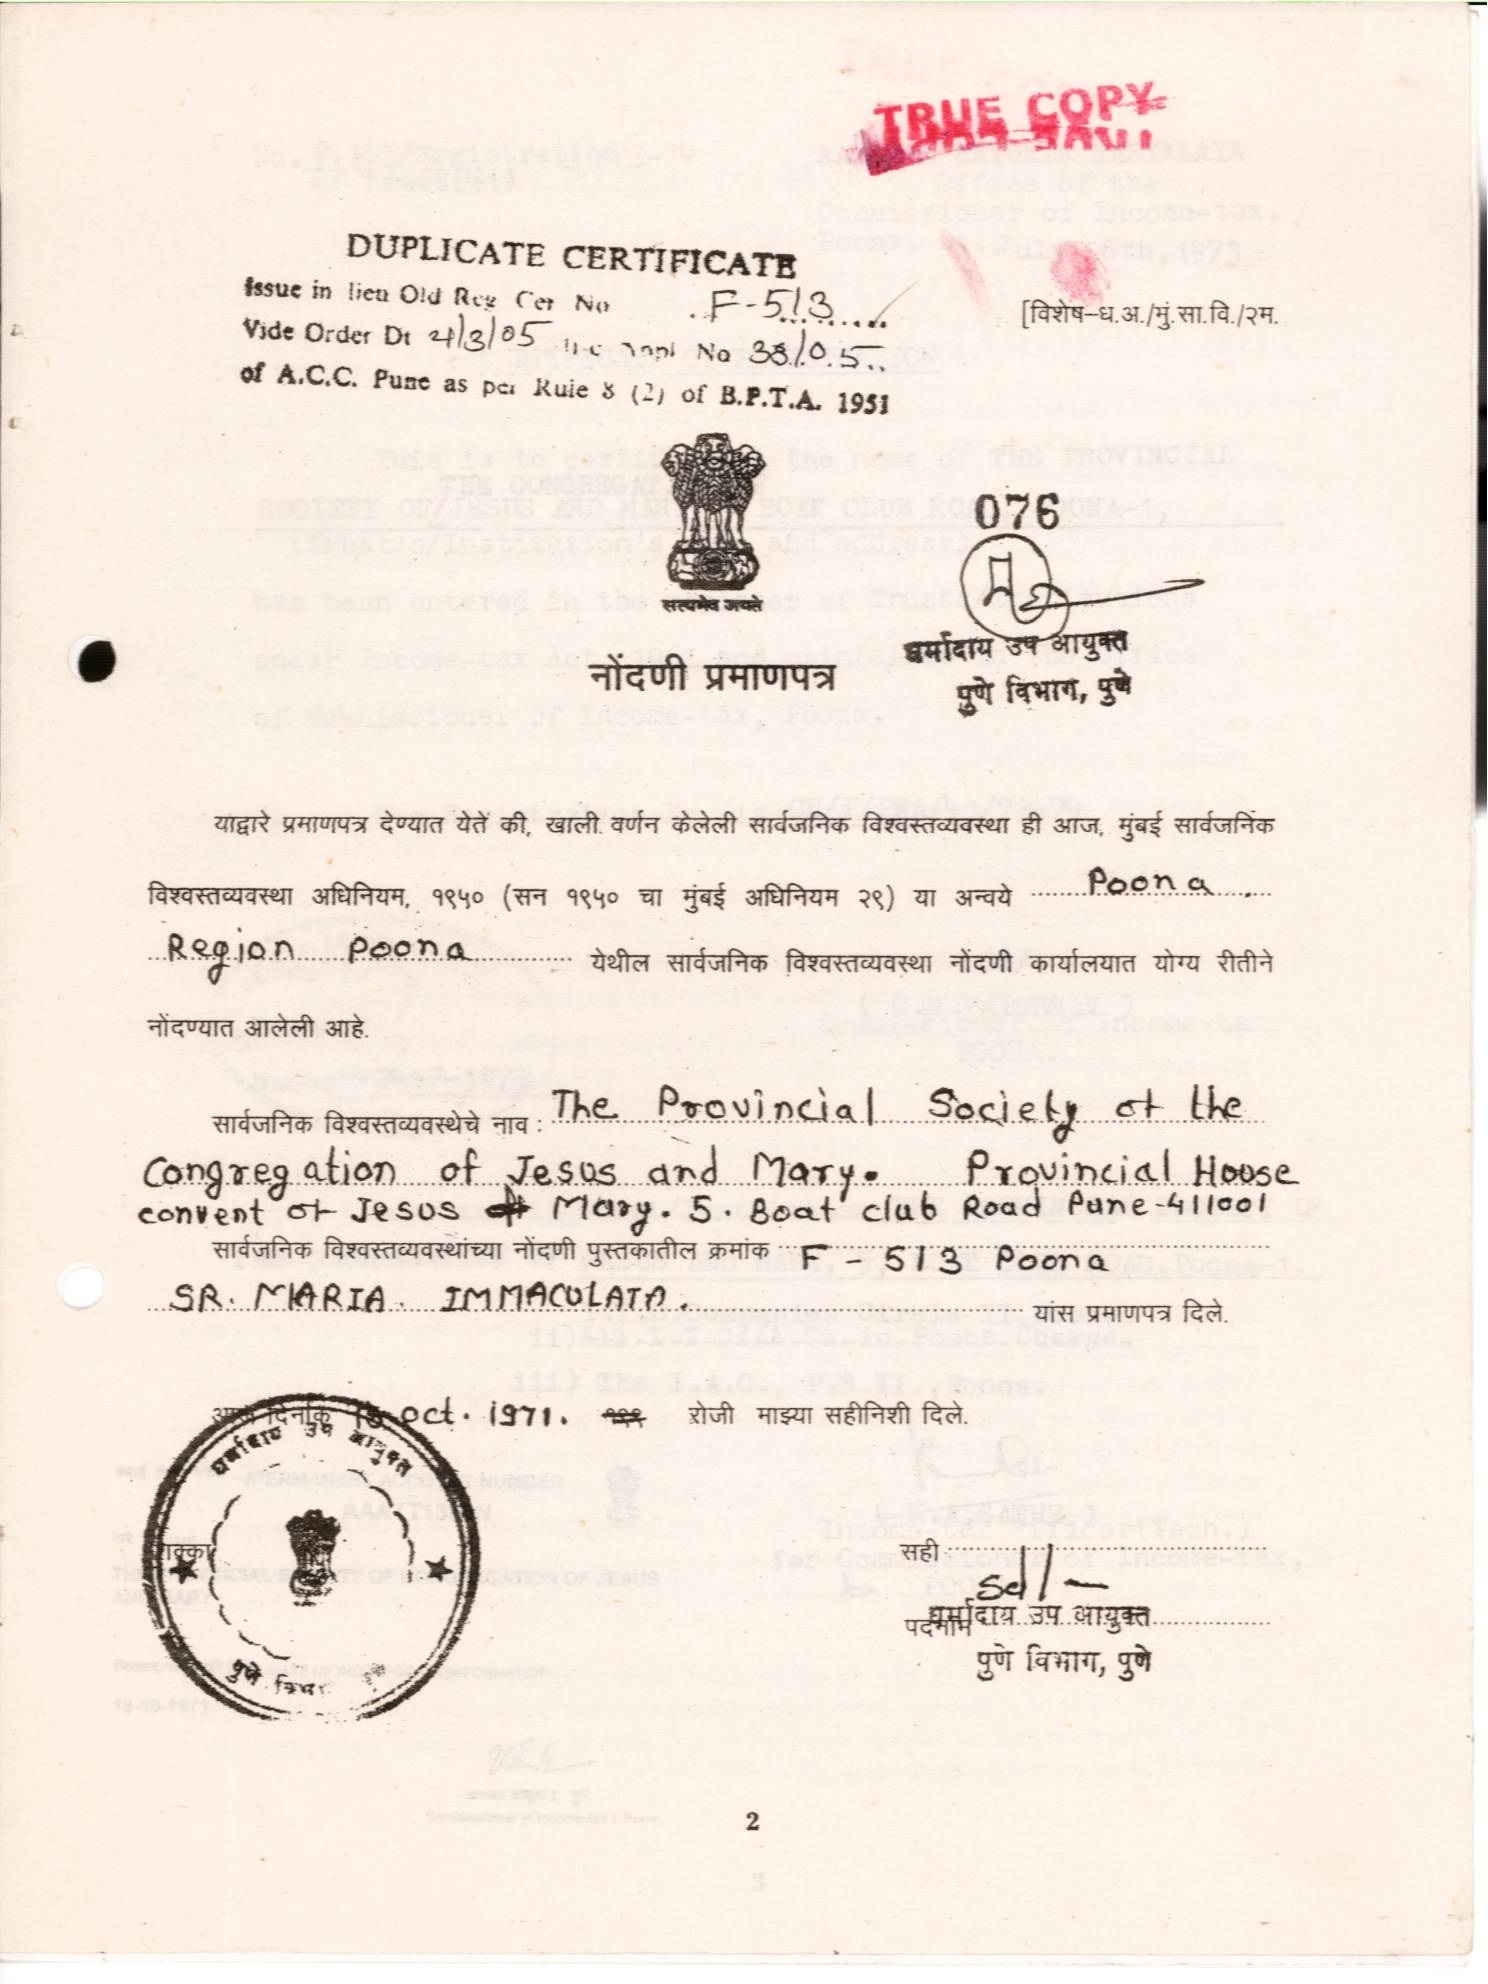 TRUE COPY
DUPLICATE CERTIFICATE
Issue in lieu Old Reg Cer No F-513
Vide Order Dt 4/3/05 No 38/05
of A.C.C. Pune as per Rule 8 (2) of B.P.T.A. 1951
[विशेष–ध.अ./मुं.सा.वि./२म.
076
सत्यमेव जयते
धर्मादाय उप आयुक्त
पुणे विभाग, पुणे
नोंदणी प्रमाणपत्र
याद्वारे प्रमाणपत्र देण्यात येतें की, खाली वर्णन केलेली सार्वजनिक विश्वस्तव्यवस्था ही आज, मुंबई सार्वजनिक
विश्वस्तव्यवस्था अधिनियम, १९५० (सन १९५० चा मुंबई अधिनियम २९) या अन्वये Poona
Region Poona येथील सार्वजनिक विश्वस्तव्यवस्था नोंदणी कार्यालयात योग्य रीतीने
नोंदण्यात आलेली आहे.
सार्वजनिक विश्वस्तव्यवस्थेचे नाव : The Provincial Society of the
Congregation of Jesus and Mary. Provincial House
convent of Jesus Mary. 5. Boat club Road Pune-411001
सार्वजनिक विश्वस्तव्यवस्थांच्या नोंदणी पुस्तकातील क्रमांक F - 513 Poona
SR. MARIA. IMMACULATA. यांस प्रमाणपत्र दिले.
आज दिनांक oct. 1971. रोजी माझ्या सहीनिशी दिले.
धर्मादाय उप आयुक्त
शिक्का
पुणे विभाग
सही
Sd/-
धर्मादाय उप आयुक्त
पदनाम
पुणे विभाग, पुणे
2